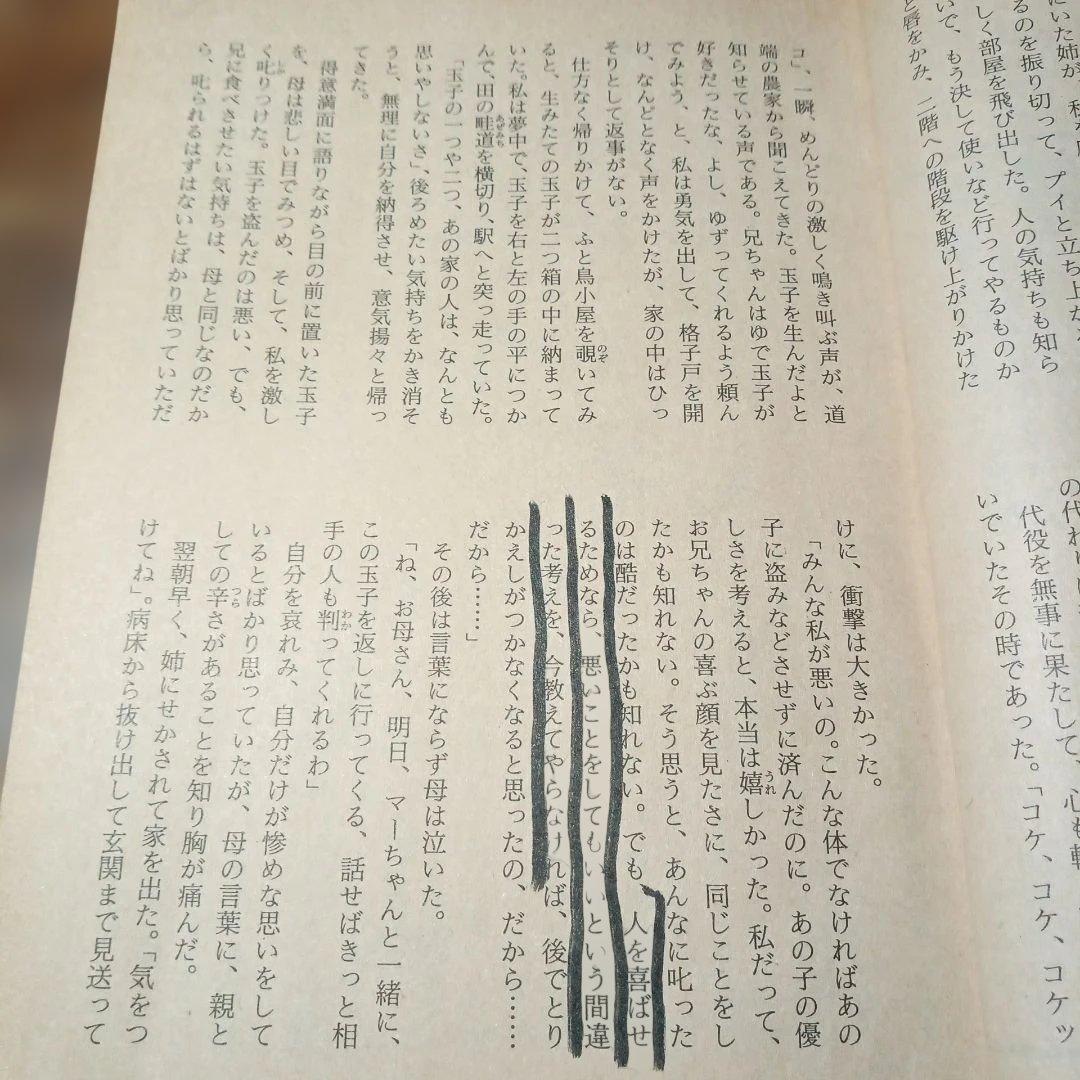 にいた姉が、
るのを振り切って、プイと立ち上が
しく部屋を飛び出した。人の気持ちも知ら
いで、もう決して使いなど行ってやるものか
と唇をかみ、二階への階段を駆け上がりかけた
の代わりに
代役を無事に果たして、心も軽
いでいたその時であった。「コケ、コケ、コケッ
コ」、一瞬、めんどりの激しく鳴き叫ぶ声が、道
端の農家から聞こえてきた。玉子を生んだよと
知らせている声である。兄ちゃんはゆで玉子が
好きだったな、よし、ゆずってくれるよう頼ん
でみよう、と、私は勇気を出して、格子戸を開
け、なんどとなく声をかけたが、家の中はひっ
そりとして返事がない。
仕方なく帰りかけて、ふと鳥小屋を覗いてみ
ると、生みたての玉子が二つ箱の中に納まって
いた。私は夢中で、玉子を右と左の手の平につか
んで、田の畦道を横切り、駅へと突っ走っていた。
「玉子の一つや二つ、あの家の人は、なんとも
思いやしないさ」、後ろめたい気持ちをかき消そ
うと、無理に自分を納得させ、意気揚々と帰っ
てきた。
得意満面に語りながら目の前に置いた玉子
を、母は悲しい目でみつめ、そして、私を激し
く叱りつけた。玉子を盗んだのは悪い、でも、
兄に食べさせたい気持ちは、母と同じなのだか
ら、叱られるはずはないとばかり思っていただ
けに、衝撃は大きかった。
「みんな私が悪いの。こんな体でなければあの
子に盗みなどさせずに済んだのに。あの子の優
しさを考えると、本当は嬉しかった。私だって、
お兄ちゃんの喜ぶ顔を見たさに、同じことをし
たかも知れない。そう思うと、あんなに叱った
のは酷だったかも知れない。でも、人を喜ばせ
るためなら、悪いことをしてもいいという間違
った考えを、今教えてやらなければ、後でとり
かえしがつかなくなると思ったの、だから……
だから……」
その後は言葉にならず母は泣いた。
「ね、お母さん、明日、マーちゃんと一緒に、
この玉子を返しに行ってくる、話せばきっと相
手の人も判ってくれるわ」
自分を哀れみ、自分だけが惨めな思いをして
いるとばかり思っていたが、母の言葉に、親と
しての辛さがあることを知り胸が痛んだ。
翌朝早く、姉にせかされて家を出た。「気をつ
けてね」。病床から抜け出して玄関まで見送って